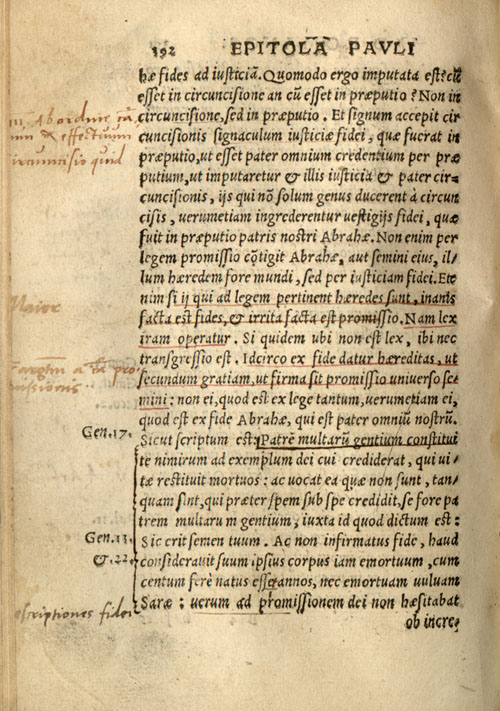 192 EPITOLA PAVLI
hæ fides ad iusticiã. Quomodo ergo imputata est? cũ
esset in circuncisione an cũ esset in præputio? Non in
circuncisione, sed in præputio. Et signum accepit cir
cuncisionis signaculum iusticiæ fidei, quæ fuerat in
præputio, ut esset pater omnium credentium per præ
putium, ut imputaretur & illis iusticia & pater cir-
cuncisionis, ijs qui nõ solum genus ducerent à circun
cisis, verumetiam ingrederentur uestigijs fidei, quæ
fuit in præputio patris nostri Abrahæ. Non enim per
legem promissio cõtigit Abrahæ, aut semini eius, il-
lum hæredem fore mundi, sed per iusticiam fidei. Ete
nim si ij qui ad legem pertinent hæredes sunt, inanis
facta est fides, & irrita facta est promissio. Nam lex
iram operatur. Si quidem ubi non est lex, ibi nec
transgressio est. Idcirco ex fide datur hæreditas, ut
secundum gratiam, ut firma sit promissio universo se-
mini: non ei, quod est ex lege tantum, verumetiam ei,
quod est ex fide Abrahæ, qui est pater omniũ nostrũ.
Gen. 17. Sicut scriptum est: Patrẽ multarũ gentium constitui
te nimirum ad exemplum dei cui crediderat, qui vi-
tæ restituit mortuos: ac vocat ea quæ non sunt, tan-
quam sint, qui præter spem sub spe credidit, se fore pa
trem multarum gentium, iuxta id quod dictum est:
Sic erit semen tuum. Ac non infirmatus fide, haud
Gen. 15. consideravit suum ipsius corpus iam emortuum, cum
& 22. centum ferè natus esset annos, nec emortuam uuluam
Saræ: uerum ad promissionem dei non hæsitabat
ob incre-
Abordine
& effectuum
circumcisio quid
Maior
descriptiones fidei